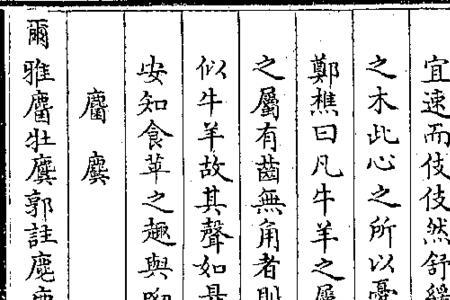 宜速而伎伎然舒緩
之木此心之所以憂
鄭樵曰凡牛羊之屬
之屬有齒無角者則
似牛羊故其聲如是
安知食苹之趣與呦
麕 麌
爾雅麕牡麌郭註麀鹿